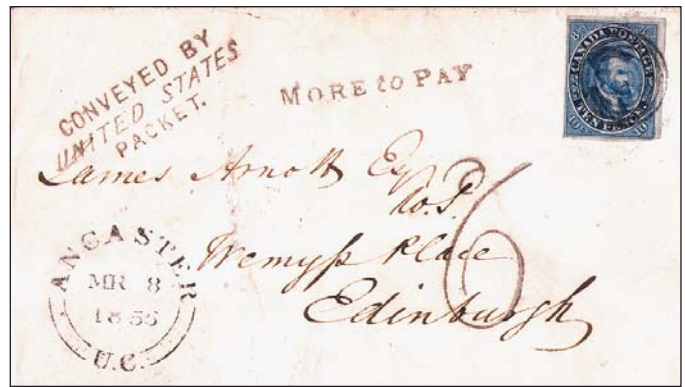 CONVEYED BY
UNITED STATES
PACKET.
MORE to PAY
8 CANADA POSTAGE
TEN PENCE
10 10
James Arnott Esq
W.S.
Wemyss Place
Edinburgh
6
ANCASTER
MR 8
1855
U.C.